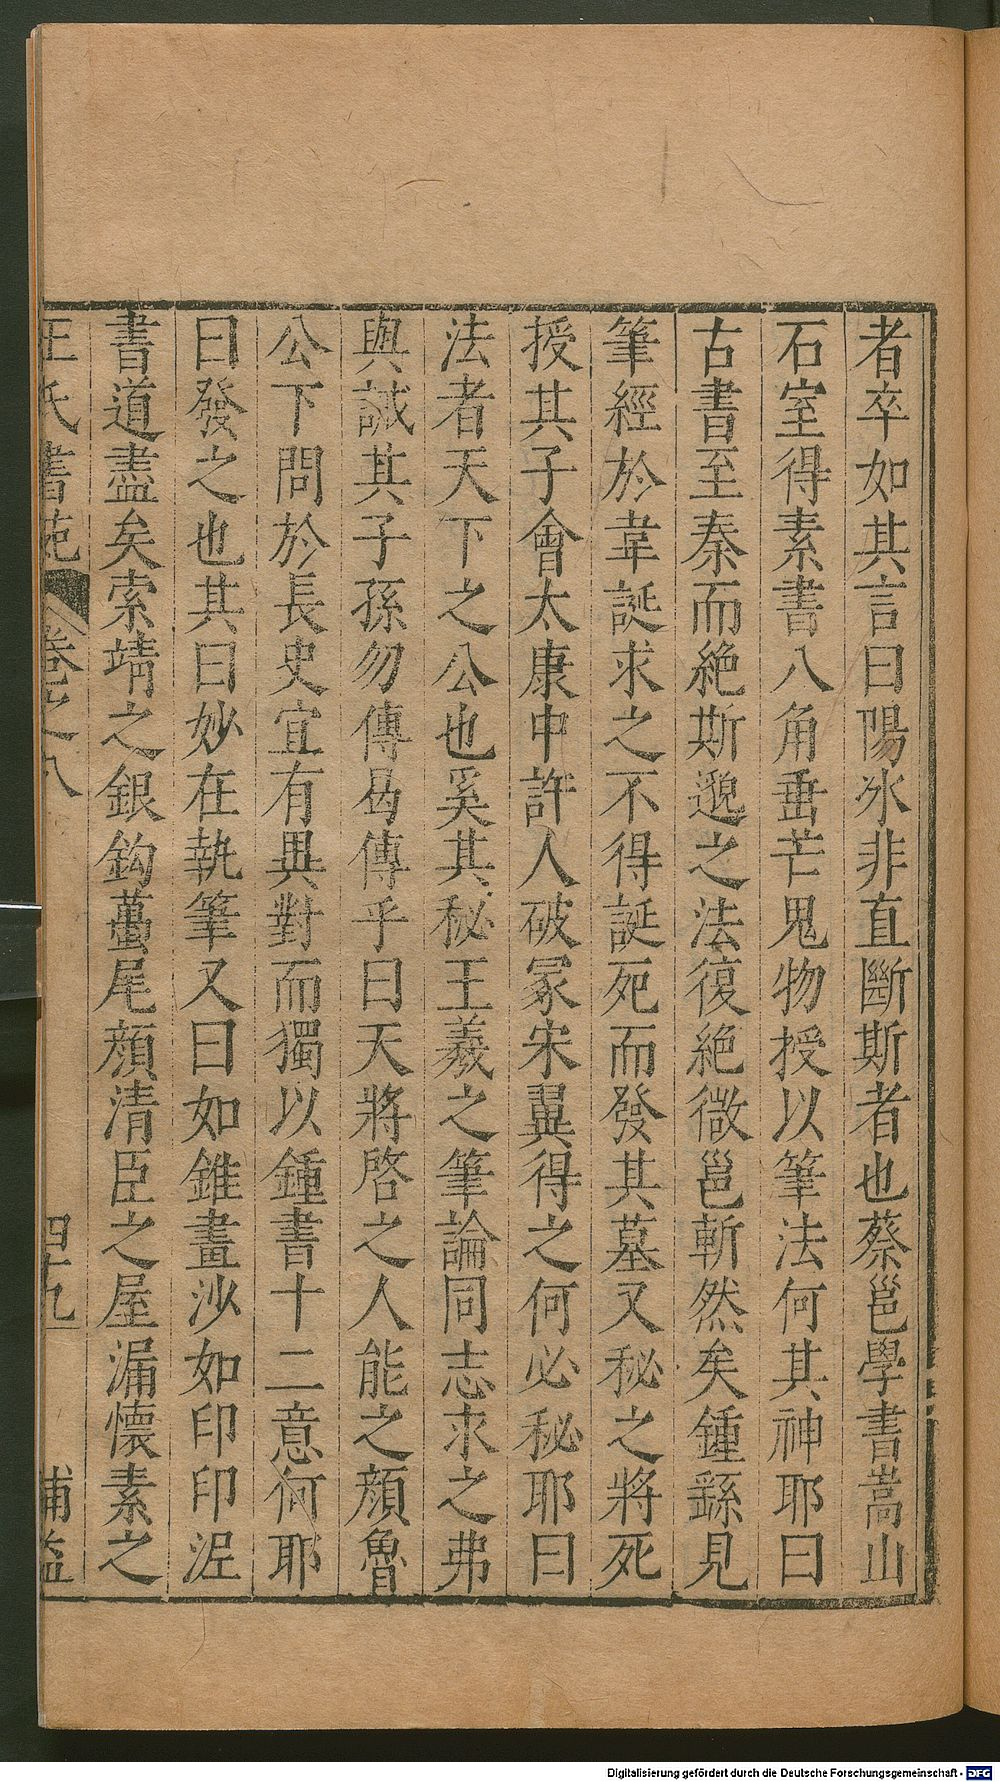 者卒如其言曰陽氷非直斷斯者也蔡邕學書嵩山
石室得素書八角垂芒鬼物授以筆法何其神耶曰
古書至秦而絶斯邈之法復絶微邕斬然矣鍾繇見
筆經於韋誕求之不得誕死而發其墓又秘之將死
授其子會太康中許人破冢宋翼得之何必秘耶曰
法者天下之公也奚其秘王羲之筆論同志求之弗
與誡其子孫勿傳曷傳乎曰天將啓之人能之顔魯
公下問於長史宜有異對而獨以鍾書十二意何耶
曰發之也其曰妙在執筆又曰如錐畫沙如印印泥
書道盡矣索靖之銀鈎蠆尾顔清臣之屋漏懷素之
王氏書苑 卷之八 四十九 補益
Digitalisierung gefördert durch die Deutsche Forschungsgemeinschaft - DFG